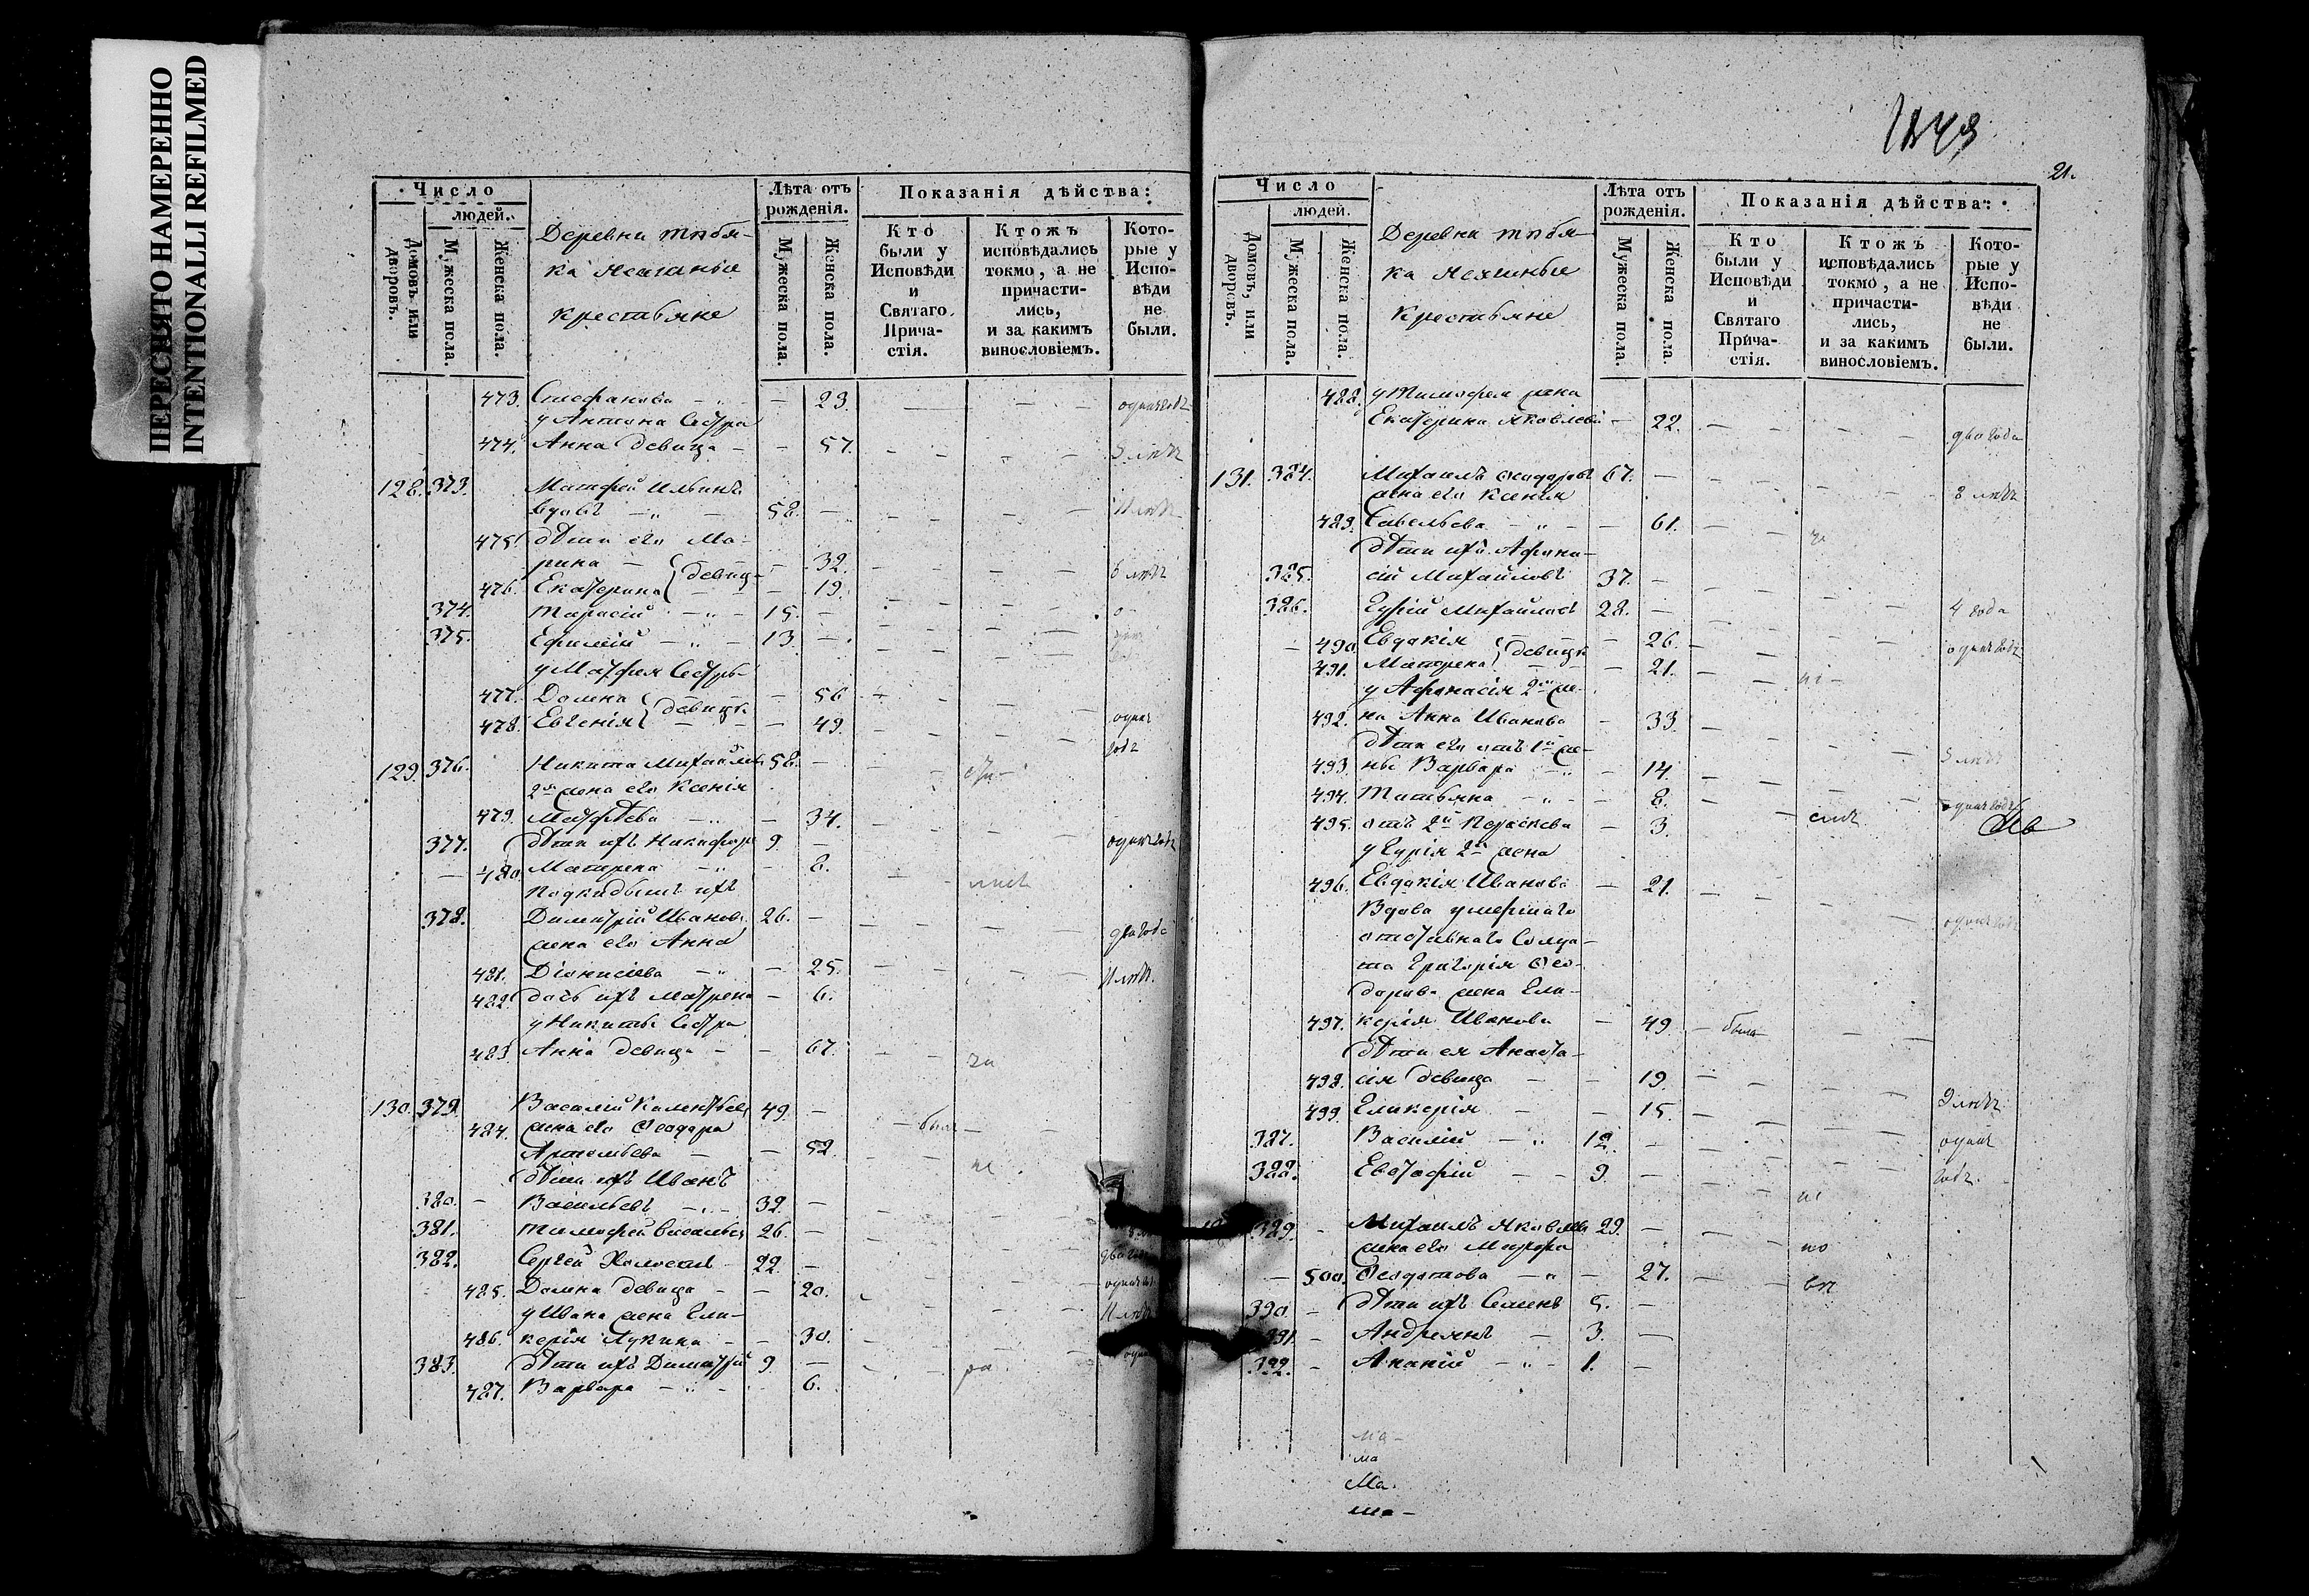 ПЕРЕСНЯТО НАМЕРЕННО
INTENTIONALLI REFILMED
Число
людей.
Домовъ или дворовъ.
Мужеска пола.
Женска пола.
Деревни
крестьяне
Лѣта отъ рожденія.
Мужеска пола.
Женска пола.
Показанія дѣйства:
Кто были у Исповѣди и Святаго Прича-стія.
Ктожъ исповѣдались токмо, а не причасти-лись, и за какимъ винословіемъ.
Кото-рые у Испо-вѣди не были.
473. Стефанова — 23. одинъ годъ
у Антона Сестра
474. Анна девица — 57. 5 лѣтъ
128. 373. Матфей Ильинъ
вдовъ — 58. — 11 лѣтъ
475. дѣти его Ма-
рина — девицы — 32. 6 лѣтъ
476. Екатерина — 19.
374. Тарасій — 15. —
375. Ефимій — 13. —
у Матфея Сестры
477. Домна девицы — 56
478. Евгенія — 49. одинъ
годъ
129. 376. Никита Михайловъ 58. —
2я жена его Ксенія
479. Матфѣева — 34.
377. дѣти ихъ Никифоръ 9. — одинъ годъ
— 480. Матрена — 8.
Подкидышъ ихъ
378. Димитрій Ивановъ 26. — два года
жена его Анна
481. Діонисіева — 25. 11 лѣтъ.
482 дочь ихъ Матрена — 6.
у Никиты Сестра
483 Анна девица — 67.
130. 379. Василій 49. — былъ
484. жена его Ѳеодора
Артемьева — 52.
дѣти ихъ Иванъ
380. — Васильевъ — 32. —
381. Тимофей Васильевъ 26. —
382. Сергей Холостъ 22. —
485. Домна девица — 20.
у Ивана жена Гли-
486. керія Лукина — 30.
383. дѣти ихъ Димитрій 9. —
487. Варвара — 6.
1849
21.
Число
людей.
Домовъ, или дворовъ.
Мужеска пола.
Женска пола.
Деревни
крестьяне
Лѣта отъ рожденія.
Мужеска пола.
Женска пола.
Показанія дѣйства:
Кто были у Исповѣди и Святаго Прича-стія.
Ктожъ исповѣдались токмо, а не причасти-лись, и за какимъ винословіемъ.
Кото-рые у Испо-вѣди не были.
488. у Тимофея жена
Екатерина Яковлева — 22. два года
131. 384. Михаилъ Ѳеодоровъ 67. — 8 лѣтъ
жена его Ксенія
489. Савельева — 61. —
дѣти ихъ Афана-
385. сій Михайловъ 37. —
386. Гурій Михайловъ 28. — 4 года
— 490. Евдокія девицы — 26. одинъ годъ
491. Матрена — 21.
у Афанасія 2я же-
492. на Анна Иванова — 33.
дѣти его отъ 1й же-
493. ны Варвара — 14. 5 лѣтъ
494. Татьяна — 8. одинъ годъ
495. отъ 2й Параскева — 3.
у Гурія 2я жена
496. Евдокія Иванова — 21. одинъ годъ
Вдова умершаго
отставнаго Солда-
та Григорія Ѳео-
дорова жена Гли-
497. керія Иванова — 49 — была —
дѣти ея Анаста-
498. сія девица — 19. 9 лѣтъ
499. Гликерія — 15. —
387. Василій — 12. — одинъ
388. Евстафій — 9. — годъ
389. — Михаилъ Яковлевъ 29. —
жена его Марфа
— 500. Ѳеодотова — 27. —
390. — дѣти ихъ Семенъ 5. —
391. — Андреянъ — 3. —
392. — Ананій — 1. —
ма-
ма
Ма.
ма-